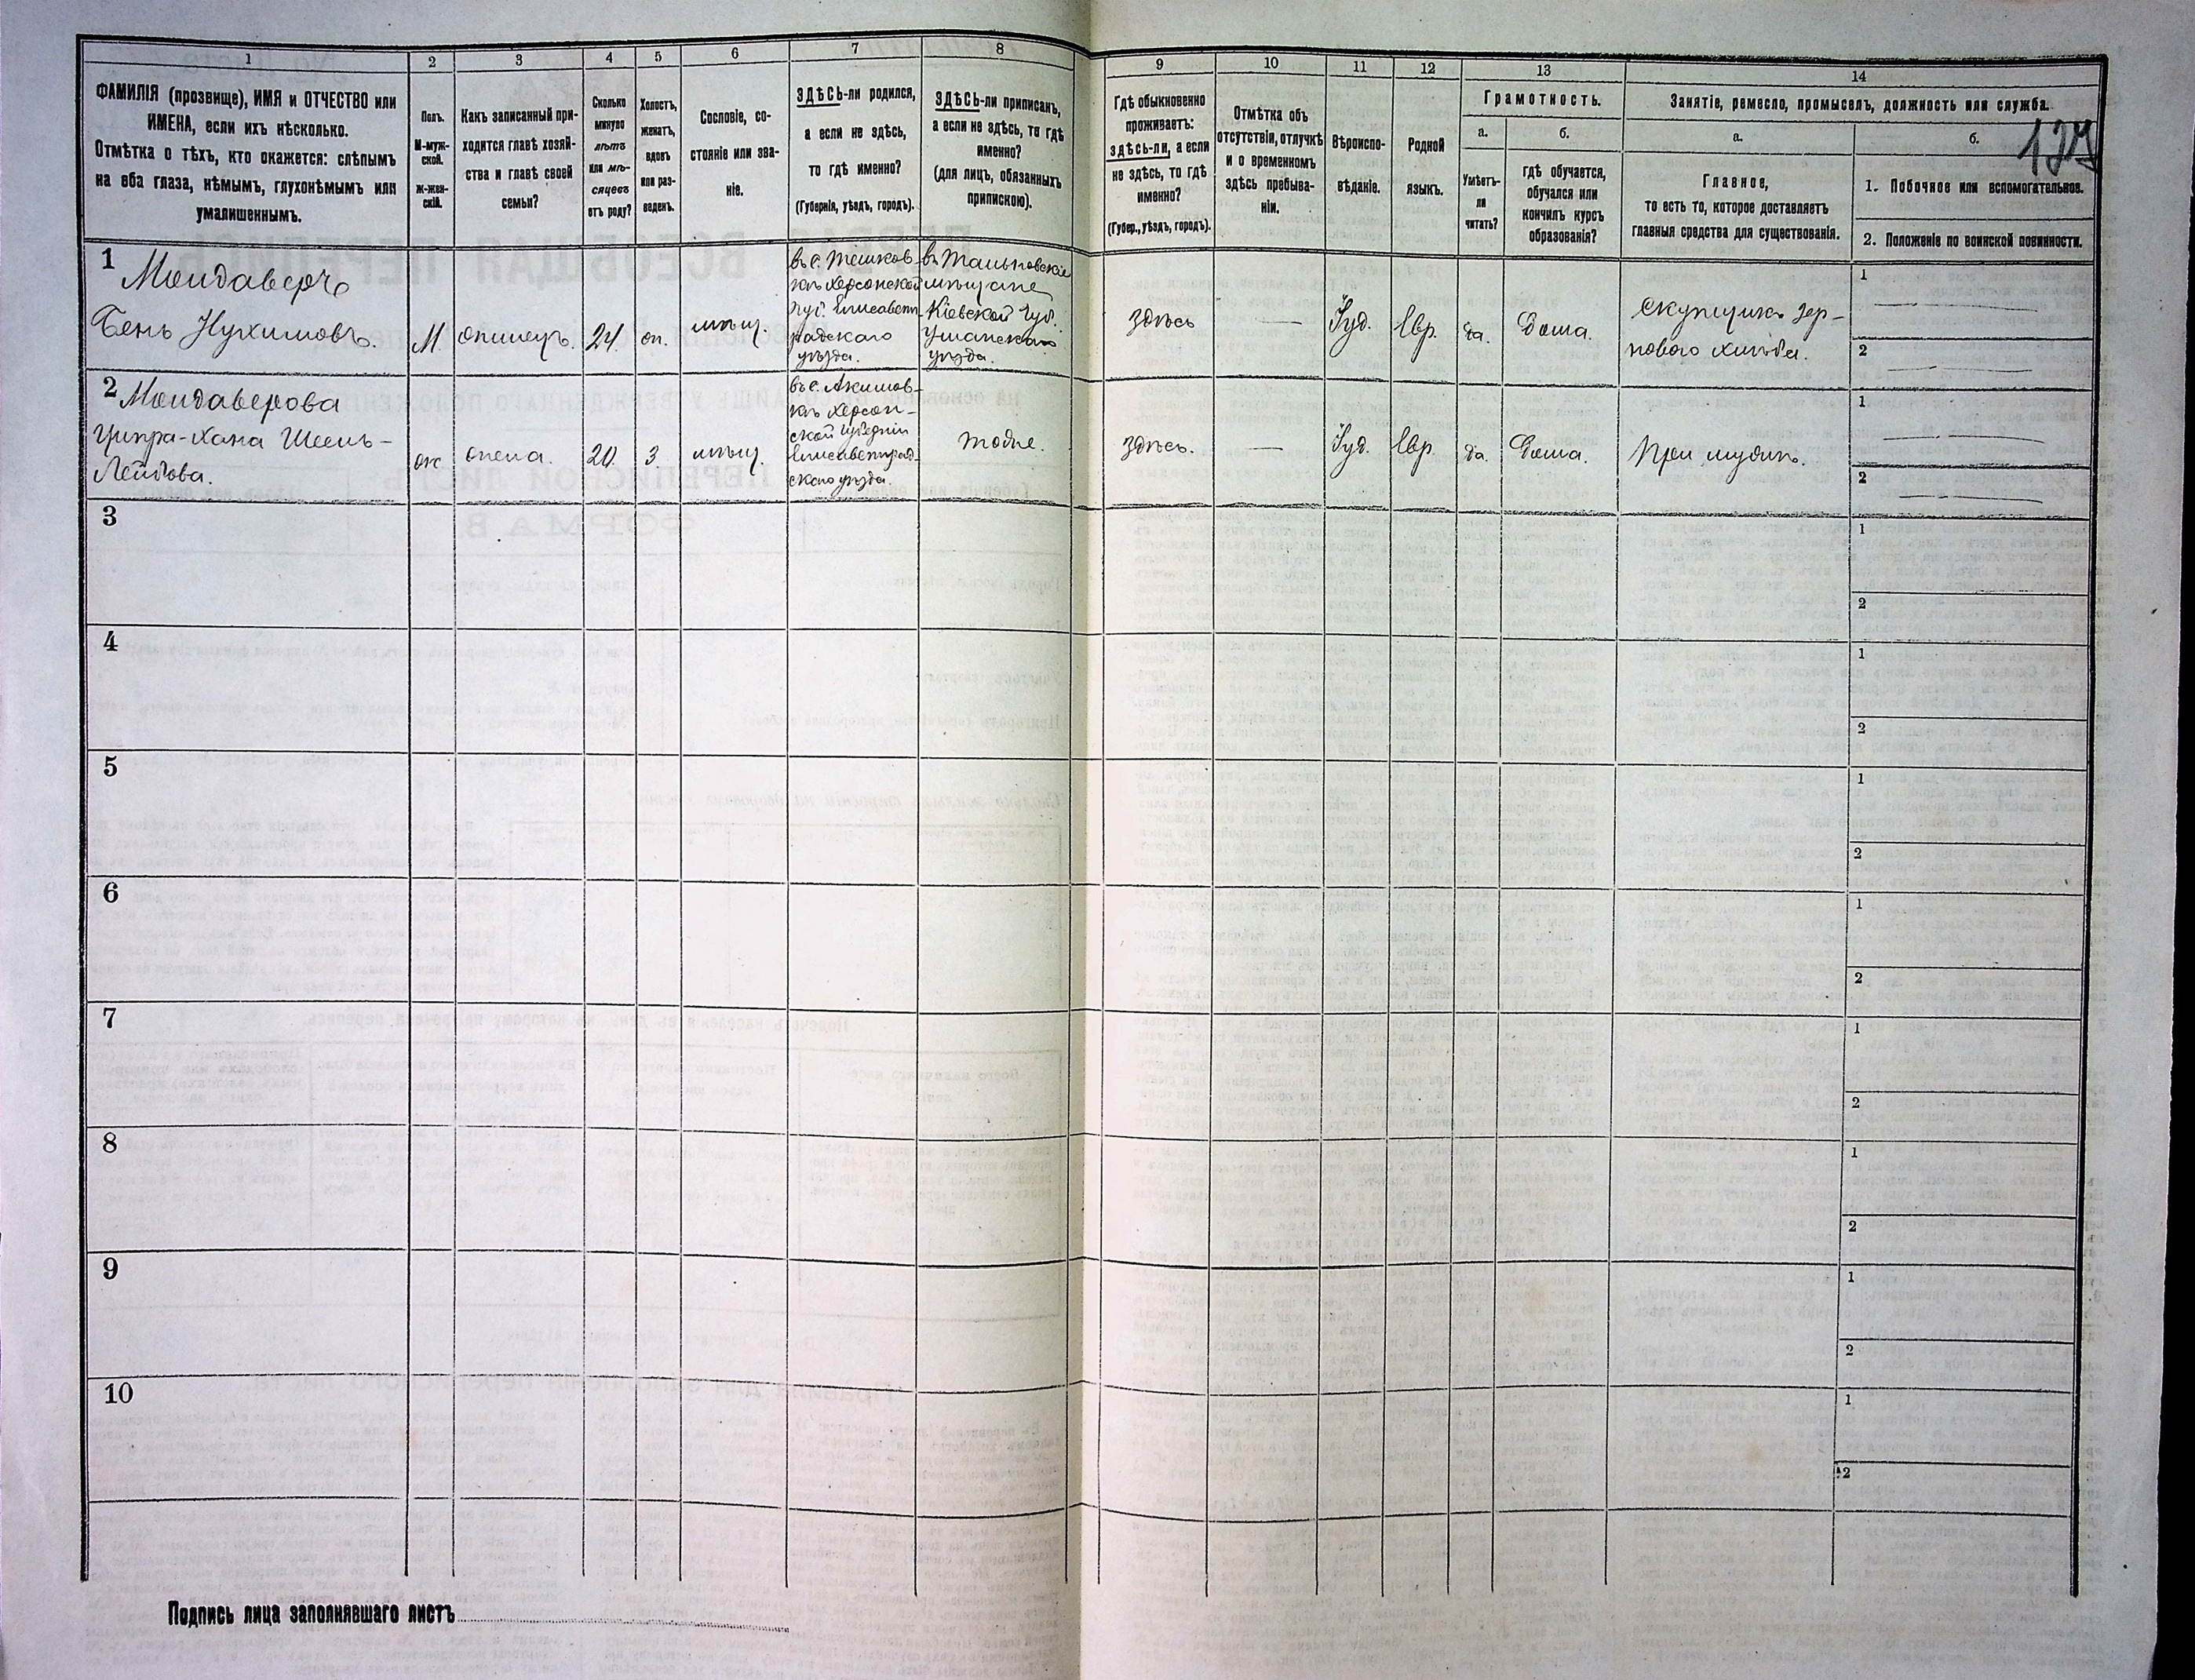 1
2
3
4
5
6
7
8
9
10
11
12
13
14
ФАМИЛІЯ (прозвище), ИМЯ и ОТЧЕСТВО или
ИМЕНА, если ихъ нѣсколько.
Отмѣтка о тѣхъ, кто окажется: слѣпымъ
на оба глаза, нѣмымъ, глухонѣмымъ или
умалишеннымъ.
Полъ.
М-муж-
ской.
ж-жен-
скій.
Какъ записанный при-
ходится главѣ хозяй-
ства и главѣ своей
семьи?
Сколько
минуло
лѣтъ
или мѣ-
сяцевъ
отъ роду?
Холостъ,
женатъ,
вдовъ
или раз-
веденъ.
Сословіе, со-
стояніе или зва-
ніе.
ЗДѢСЬ-ли родился,
а если не здѣсь,
то гдѣ именно?
(Губернія, уѣздъ, городъ).
ЗДѢСЬ-ли приписанъ,
а если не здѣсь, то гдѣ
именно?
(для лицъ, обязанныхъ
припискою).
Гдѣ обыкновенно
проживаетъ:
здѣсь-ли, а если
не здѣсь, то гдѣ
именно?
(Губер., уѣздъ, городъ).
Отмѣтка объ
отсутствіи, отлучкѣ
и о временномъ
здѣсь пребыва-
ніи.
Вѣроиспо-
вѣданіе.
Родной
языкъ.
Грамотность.
а.
б.
Умѣетъ-
ли
читать?
гдѣ обучается,
обучался или
кончилъ курсъ
образованія?
Занятіе, ремесло, промыселъ, должность или служба.
а.
б.
127
Главное,
то есть то, которое доставляетъ
главныя средства для существованія.
1. Побочное или вспомогательное.
2. Положеніе по воинской повинности.
1
Молдаверъ
Бень Нухимовъ.
М.
жилецъ.
24.
ж.
мѣщ.
въ с.
къ Херсонской
губ. Елисавет-
градскаго
уѣзда.
въ Тальновскіе
мѣщане
Кіевской губ.
Уманскаго
уѣзда.
здѣсь
—
Іуд.
Евр.
да.
Дома.
Скупщикъ зер-
нового хлѣба.
1
2
2
Молдаверова
Ципра-Хана
Лейбова.
ж
жена.
20.
З.
мѣщ.
въ с. Акимов-
къ Херсон-
ской губерніи
Елисаветград-
скаго уѣзда.
тоже.
здѣсь.
—
Іуд.
Евр.
да.
Дома.
При мужѣ.
1
2
3
1
2
4
1
2
5
1
2
6
1
2
7
1
2
8
1
2
9
1
2
10
1
2
Подпись лица заполнявшаго листъ